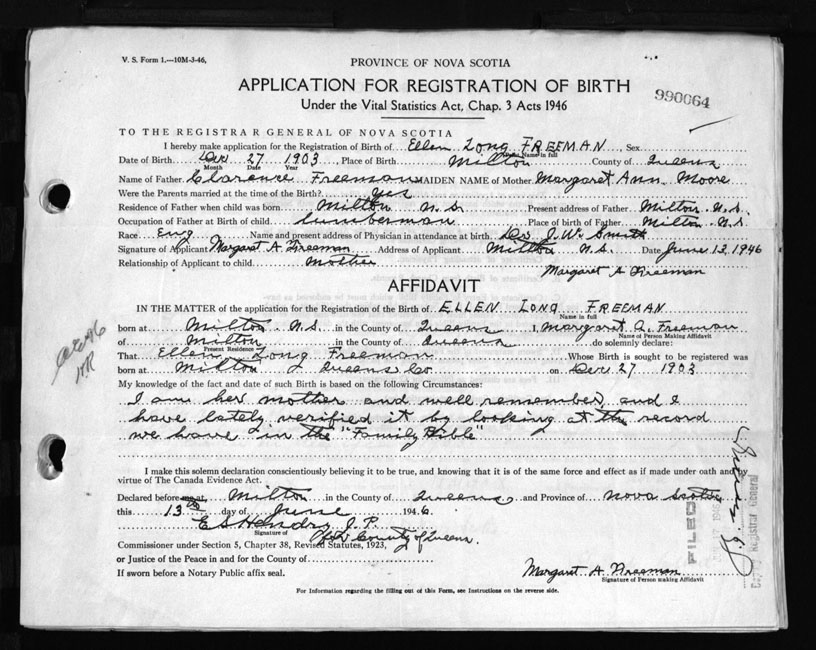 V. S. Form 1.—10M-3-46,
PROVINCE OF NOVA SCOTIA
APPLICATION FOR REGISTRATION OF BIRTH
Under the Vital Statistics Act, Chap. 3 Acts 1946
990064
TO THE REGISTRAR GENERAL OF NOVA SCOTIA
I hereby make application for the Registration of Birth of Ellen Long FREEMAN, Sex
Name in full
Date of Birth Dec 27 1903, Place of Birth Milton County of Queens
Month Date Year
Name of Father Clarence Freeman MAIDEN NAME of Mother Margaret Ann Moore
Were the Parents married at the time of the Birth? Yes
Residence of Father when child was born Milton N.S. Present address of Father Milton N.S.
Occupation of Father at Birth of child Lumberman Place of birth of Father Milton N.S
Race Eng Name and present address of Physician in attendance at birth Dr J. W. Smith
Signature of Applicant Margaret A. Freeman Address of Applicant Milton N.S. Date June 13, 1946
Relationship of Applicant to child mother
Margaret A Freeman
AFFIDAVIT
IN THE MATTER of the application for the Registration of the Birth of ELLEN LONG FREEMAN
Name in full
born at Milton N.S. in the County of Queens I, Margaret A. Freeman
Name of Person Making Affidavit
of Milton in the County of Queens do solemnly declare:
Present Residence
That Ellen Long Freeman Whose Birth is sought to be registered was
born at Milton Queens Co on Dec 27 1903
My knowledge of the fact and date of such Birth is based on the following Circumstances:
I am her mother and well remember and I
have lately verified it by looking at the record
we have in the "Family Bible"
I make this solemn declaration conscientiously believing it to be true, and knowing that it is of the same force and effect as if made under oath and by
virtue of The Canada Evidence Act.
Declared before me at, Milton in the County of Queens and Province of Nova Scotia
this 13th day of June 1946
E S Hendry J.P.
Signature of
County of Queens.
Commissioner under Section 5, Chapter 38, Revised Statutes, 1923,
or Justice of the Peace in and for the County of
If sworn before a Notary Public affix seal.
Margaret A Freeman
Signature of Person making Affidavit
For Information regarding the filling out of this Form, see Instructions on the reverse side.
FILED
Deputy Registrar General